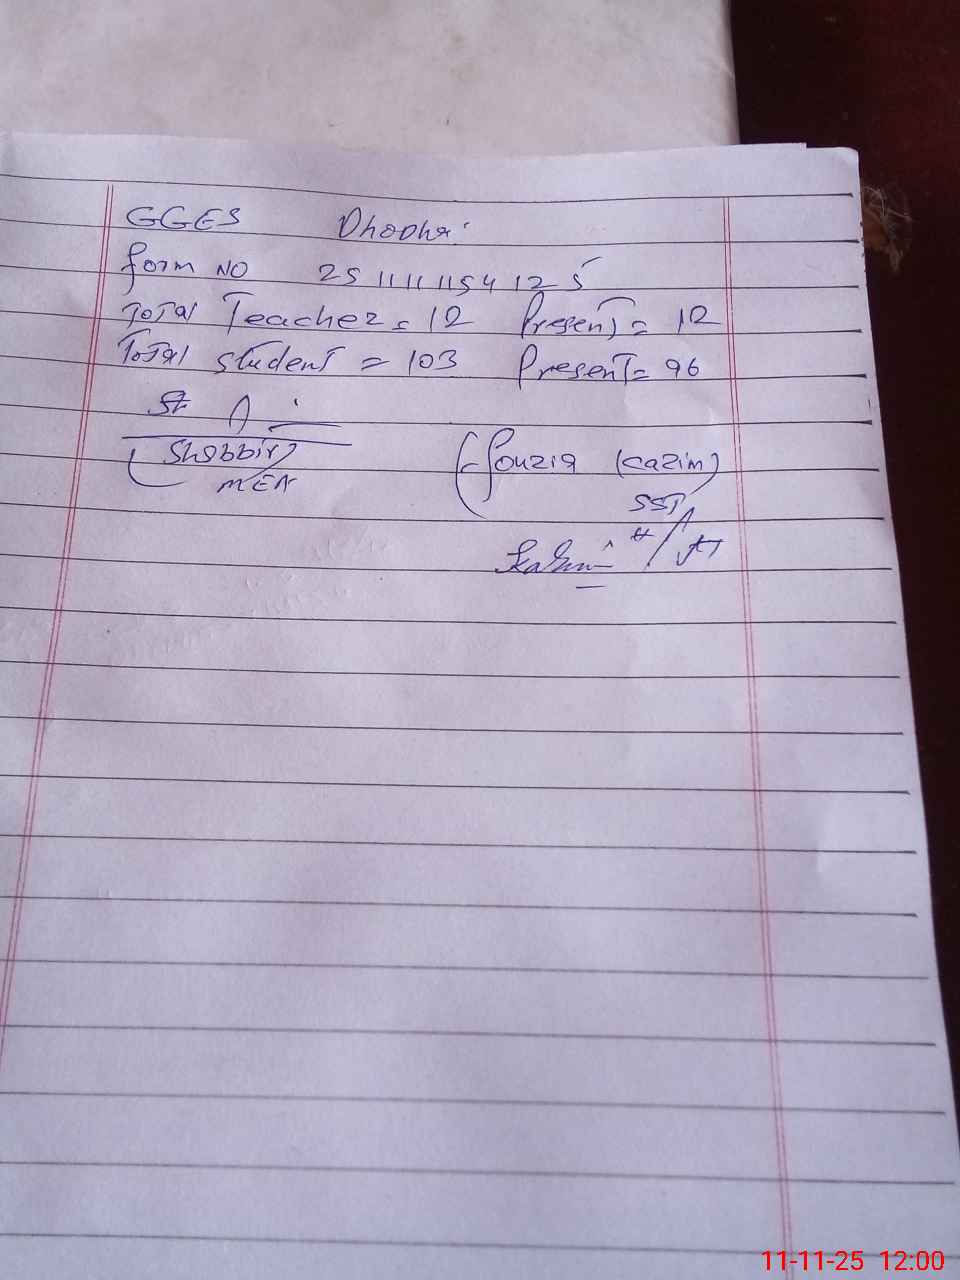 GGES Dhodha
form NO 2511111154125
Total Teacher = 12 Present = 12
Total student = 103 Present = 96
Shabbir
MEA
Fouzia Cazim
SST
11-11-25 12:00